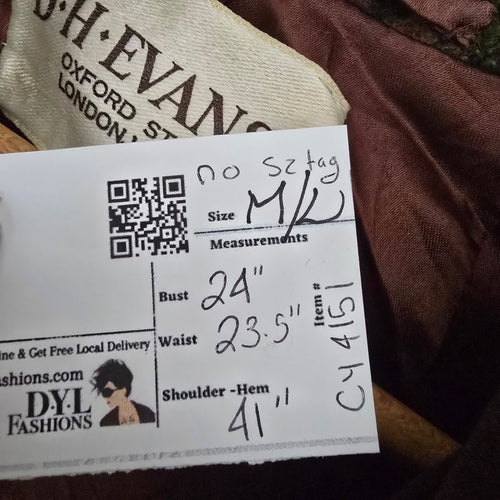 D·H·EVANS
OXFORD ST
LONDON
no sz tag
Size M/L
Measurements
Bust 24"
Waist 23.5"
Shoulder -Hem
41"
Item #
CY4151
ne & Get Free Local Delivery
shions.com
D.Y.L
FASHIONS